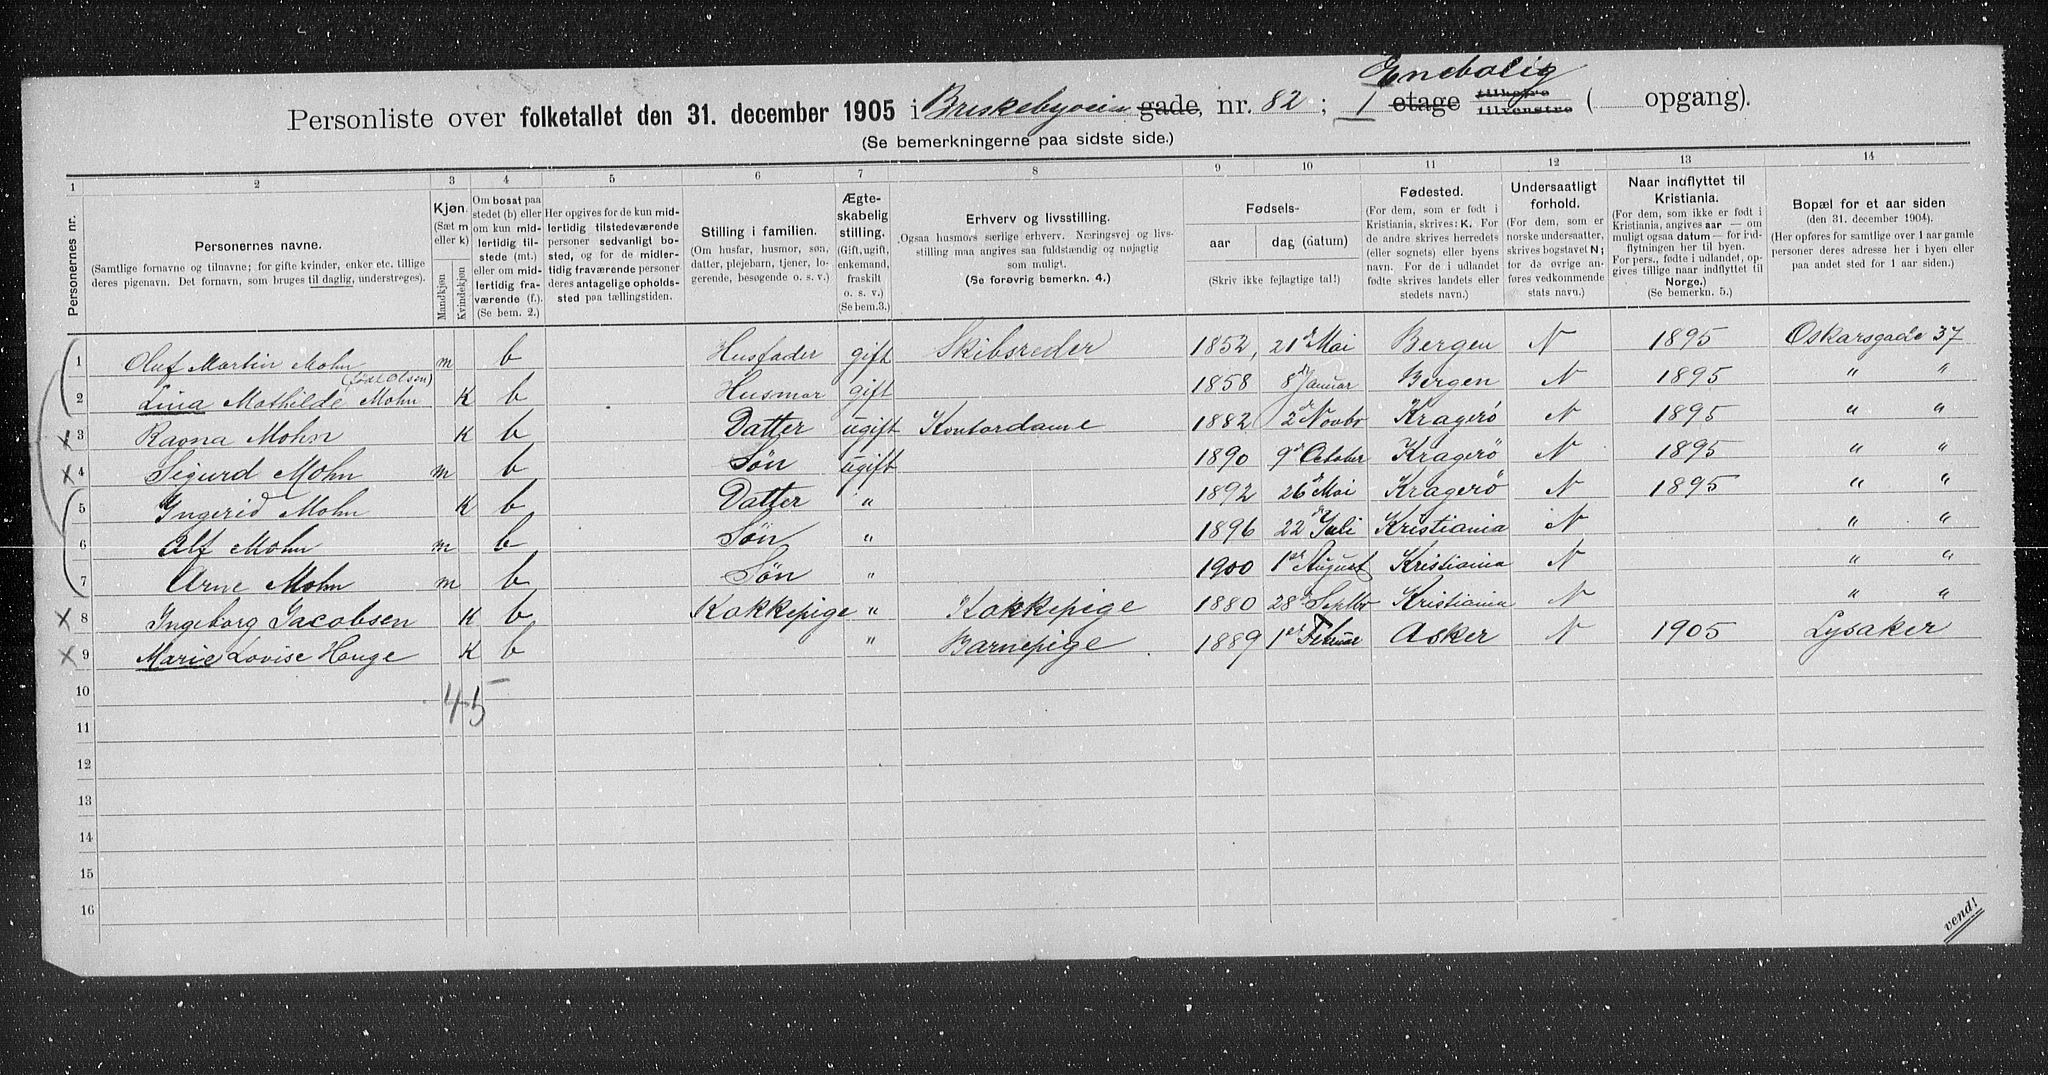 Enebolig
Personliste over folketallet den 31. december 1905 i Briskebyveien gade, nr. 82; I etage tilhøire tilvenstre ( opgang).
(Se bemerkningerne paa sidste side.)
1 2 3 4 5 6 7 8 9 10 11 12 13 14
Personernes nr.
Personernes navne.
(Samtlige fornavne og tilnavne; for gifte kvinder, enker etc. tillige
deres pigenavn. Det fornavn, som bruges til daglig, understreges).
Kjøn.
(Sæt m
eller k)
Mandkjøn
Kvindekjøn
Om bosat paa
stedet (b) eller
om kun mid-
lertidig til-
stede (mt.)
eller om mid-
lertidig fra-
værende (f.).
(Se bem. 2.)
Her opgives for de kun mid-
lertidig tilstedeværende
personer sedvanligt bo-
sted, og for de midler-
tidig fraværende personer
deres antagelige opholds-
sted paa tællingstiden.
Stilling i familien.
(Om husfar, husmor, søn,
datter, plejebarn, tjener, lo-
gerende, besøgende o. s. v.)
Ægte-
skabelig
stilling.
(Gift, ugift,
enkemand,
fraskilt
o. s. v.)
(Se bem.3.)
Erhverv og livsstilling.
(Ogsaa husmors særlige erhverv. Næringsvej og livs-
stilling maa angives saa fuldstændig og nøjagtig
som muligt.
(Se forøvrig bemerkn. 4.)
Fødsels-
aar dag (datum)
(Skriv ikke fejlagtige tal!)
Fødested.
(For dem, som er født i
Kristiania, skrives: K. For
de andre skrives herredets
(eller sognets) eller byens
navn. For de i udlandet
fødte skrives landets eller
stedets navn.)
Undersaatligt
forhold.
(For dem, som er
norske undersaatter,
skrives bogstavet N;
for de øvrige an-
føres vedkommende
stats navn.)
Naar indflyttet til
Kristiania.
(For dem, som ikke er født i
Kristiania, angives aar — om
muligt ogsaa datum — for ind-
flytningen her til byen.
For pers., fødte i udlandet, op-
gives tillige naar indflyttet til
Norge.)
(Se bemerkn. 5.)
Bopæl for et aar siden
(den 31. december 1904).
(Her opføres for samtlige over 1 aar gamle
personer deres adresse her i byen eller
paa andet sted for 1 aar siden.)
1 Oluf Martin Mohn m b Husfader gift Skibsreder 1852, 21 d Mai Bergen N 1895 Oskarsgade 37
(født Olsen)
2 Lina Mathilde Mohn K b Husmor gift 1858 8 d Januar Bergen N 1895 " "
x 3 Ragna Mohn K b Datter ugift Kontordame 1882 2 d Novbr Kragerö N 1895 " "
x 4 Sigurd Mohn m b Søn ugift 1890 9 d October Kragerö N 1895 " "
5 Ingerid Mohn K b Datter " 1892 26 d Mai Kragerö N 1895 " "
6 Alf Mohn m b Søn " 1896 22 d Juli Kristiania N " "
7 Arne Mohn m b Søn " 1900 1ste August Kristiania N " "
x 8 Ingeborg Jacobsen K b Kokkepige " Kokkepige 1880 28 d Septbr Kristiania N " "
x 9 Marie Lovise Hauge K b " Barnepige 1889 1ste Februar Asker N 1905 Lysaker
10 4 5
11
12
13
14
15
16
vend!